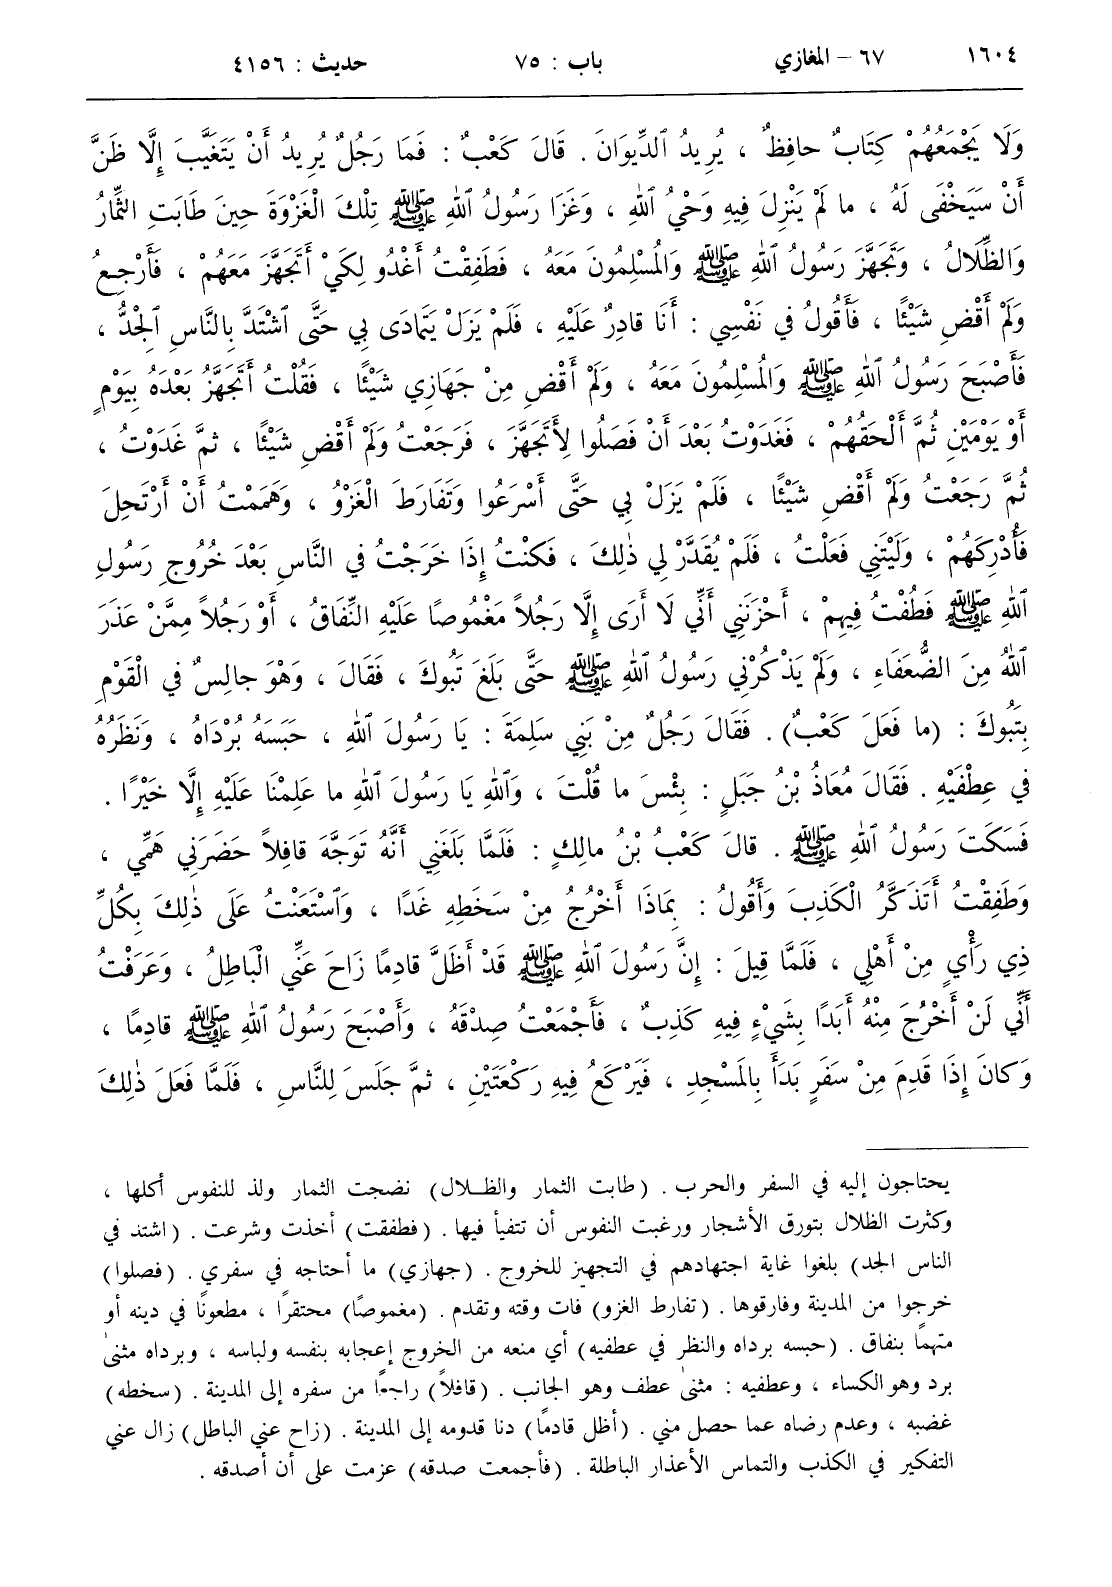 ١٦٠٤ ٦٧ – المغازي باب : ٧٥ حديث : ٤١٥٦
وَلَا يَجْمَعُهُمْ كِتَابٌ حافِظٌ ، يُرِيدُ ٱلدِّيوَانَ . قَالَ كَعْبٌ : فَمَا رَجُلٌ يُرِيدُ أَنْ يَتَغَيَّبَ إِلَّا ظَنَّ
أَنْ سَيَخْفَى لَهُ ، ما لَمْ يَنْزِلْ فِيهِ وَحْيُ ٱللهِ ، وَغَزَا رَسُولُ ٱللهِ ﷺ تِلْكَ الْغَزْوَةَ حِينَ طَابَتِ الثِّمَارُ
وَالظِّلَالُ ، وَتَجَهَّزَ رَسُولُ ٱللهِ ﷺ وَالْمُسْلِمُونَ مَعَهُ ، فَطَفِقْتُ أَغْدُو لِكَيْ أَتَجَهَّزَ مَعَهُمْ ، فَأَرْجِعُ
وَلَمْ أَقْضِ شَيْئًا ، فَأَقُولُ في نَفْسِي : أَنَا قادِرٌ عَلَيْهِ ، فَلَمْ يَزَلْ يَتَمَادَى بِي حَتَّى ٱشْتَدَّ بِالنَّاسِ ٱلْجِدُّ ،
فَأَصْبَحَ رَسُولُ ٱللهِ ﷺ وَالْمُسْلِمُونَ مَعَهُ ، وَلَمْ أَقْضِ مِنْ جَهَازِي شَيْئًا ، فَقُلْتُ أَتَجَهَّزُ بَعْدَهُ بِيَوْمٍ
أَوْ يَوْمَيْنِ ثُمَّ أَلْحَقُهُمْ ، فَغَدَوْتُ بَعْدَ أَنْ فَصَلُوا لِأَتَجَهَّزَ ، فَرَجَعْتُ وَلَمْ أَقْضِ شَيْئًا ، ثمَّ غَدَوْتُ ،
ثُمَّ رَجَعْتُ وَلَمْ أَقْضِ شَيْئًا ، فَلَمْ يَزَلْ بِي حَتَّى أَسْرَعُوا وَتَفَارَطَ الْغَزْوُ ، وَهَمَمْتُ أَنْ أَرْتَحِلَ
فَأُدْرِكَهُمْ ، وَلَيْتَنِي فَعَلْتُ ، فَلَمْ يُقَدَّرْ لِي ذٰلِكَ ، فَكُنْتُ إِذَا خَرَجْتُ في النَّاسِ بَعْدَ خُرُوجِ رَسُولِ
ٱللهِ ﷺ فَطُفْتُ فِيهِمْ ، أَحْزَنَنِي أَنِّي لَا أَرَى إِلَّا رَجُلاً مَغْمُوصًا عَلَيْهِ النِّفَاقُ ، أَوْ رَجُلاً مِمَّنْ عَذَرَ
ٱللهُ مِنَ الضُّعَفَاءِ ، وَلَمْ يَذْكُرْنِي رَسُولُ ٱللهِ ﷺ حَتَّى بَلَغَ تَبُوكَ ، فَقَالَ ، وَهْوَ جالِسٌ في الْقَوْمِ
بِتَبُوكَ : (ما فَعَلَ كَعْبٌ) . فَقَالَ رَجُلٌ مِنْ بَنِي سَلِمَةَ : يَا رَسُولَ ٱللهِ ، حَبَسَهُ بُرْدَاهُ ، وَنَظَرُهُ
في عِطْفَيْهِ . فَقَالَ مُعَاذُ بْنُ جَبَلٍ : بِئْسَ ما قُلْتَ ، وَٱللهِ يَا رَسُولَ ٱللهِ ما عَلِمْنَا عَلَيْهِ إِلَّا خَيْرًا .
فَسَكَتَ رَسُولُ ٱللهِ ﷺ . قالَ كَعْبُ بْنُ مالِكٍ : فَلَمَّا بَلَغَنِي أَنَّهُ تَوَجَّهَ قافِلاً حَضَرَنِي هَمِّي ،
وَطَفِقْتُ أَتَذَكَّرُ الْكَذِبَ وَأَقُولُ : بِمَاذَا أَخْرُجُ مِنْ سَخَطِهِ غَدًا ، وَٱسْتَعَنْتُ عَلَى ذٰلِكَ بِكُلِّ
ذِي رَأْيٍ مِنْ أَهْلِي ، فَلَمَّا قِيلَ : إِنَّ رَسُولَ ٱللهِ ﷺ قَدْ أَظَلَّ قادِمًا زَاحَ عَنِّي الْبَاطِلُ ، وَعَرَفْتُ
أَنِّي لَنْ أَخْرُجَ مِنْهُ أَبَدًا بِشَيْءٍ فِيهِ كَذِبٌ ، فَأَجْمَعْتُ صِدْقَهُ ، وَأَصْبَحَ رَسُولُ ٱللهِ ﷺ قادِمًا ،
وَكانَ إِذَا قَدِمَ مِنْ سَفَرٍ بَدَأَ بِالْمَسْجِدِ ، فَيَرْكَعُ فِيهِ رَكْعَتَيْنِ ، ثمَّ جَلَسَ لِلنَّاسِ ، فَلَمَّا فَعَلَ ذٰلِكَ
يحتاجون إليه في السفر والحرب . (طابت الثمار والظـلال) نضجت الثمار ولذ للنفوس أكلها ،
وكثرت الظلال بتورق الأشجار ورغبت النفوس أن تتفيأ فيها . (فطفقت) أخذت وشرعت . (اشتد في
الناس الجد) بلغوا غاية اجتهادهم في التجهيز للخروج . (جهازي) ما أحتاجه في سفري . (فصلوا)
خرجوا من المدينة وفارقوها . (تفارط الغزو) فات وقته وتقدم . (مغموصًا) محتقرًا ، مطعونًا في دينه أو
متهمًا بنفاق . (حبسه برداه والنظر في عطفيه) أي منعه من الخروج إعجابه بنفسه ولباسه ، وبرداه مثنىٰ
برد وهو الكساء ، وعطفيه : مثنىٰ عطف وهو الجانب . (قافلاً) راجعًا من سفره إلى المدينة . (سخطه)
غضبه ، وعدم رضاه عما حصل مني . (أظل قادمًا) دنا قدومه إلى المدينة . (زاح عني الباطل) زال عني
التفكير في الكذب والتماس الأعذار الباطلة . (فأجمعت صدقه) عزمت على أن أصدقه .